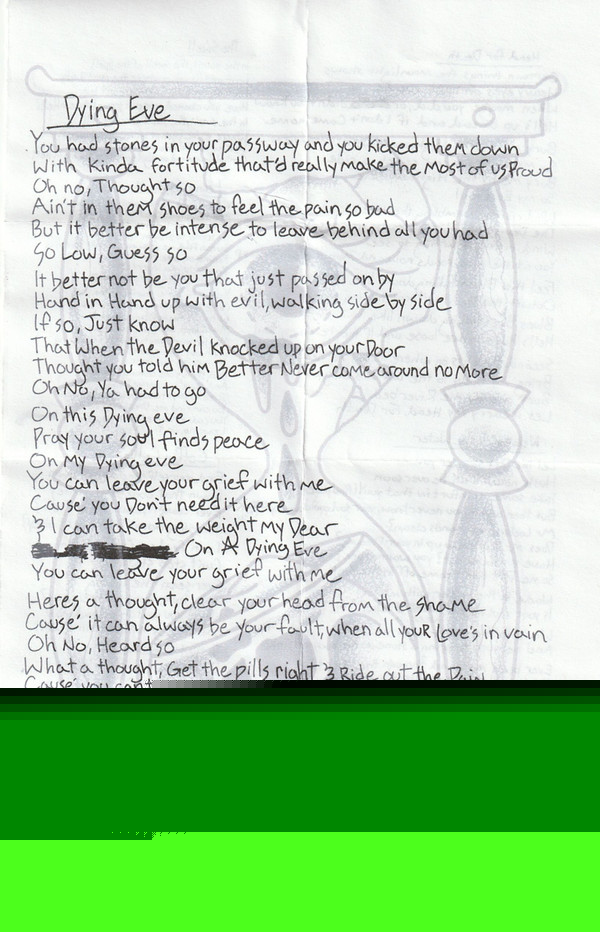 Dying Eve
You had stones in your passway and you kicked them down
With Kinda fortitude that'd really make the Most of us Proud
Oh no, Thought so
Ain't in them shoes to feel the pain so bad
But it better be intense to leave behind all you had
So Low, Guess so
It better not be you that just passed on by
Hand in Hand up with evil, walking side by side
If so, Just know
That When the Devil knocked up on your Door
Thought you told him Better Never come around no More
Oh No, Ya had to go
On this Dying eve
Pray your soul finds peace
On My Dying eve
You can leave your grief with me
Cause' you Don't need it here
& I can take the weight My Dear
On A Dying Eve
You can leave your grief with me
Heres a thought, clear your head from the shame
Cause' it can always be your fault, when all your Love's in vain
Oh No, Heard so
What a thought, Get the pills right & Ride out the Pain
Cause' you can't